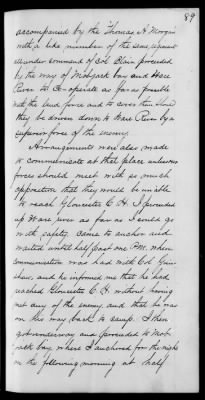 89
accompanied by the Thomas A Morgan
with a like number of the same regiment
all under command of Col Blain proceeded
by the way of Mobjack bay and Ware
River to co-operate as far as possible
with the land force and to cover them should
they be driven down to Ware River by a
superior force of the enemy.
Arrangements were also made
to communicate at that place unless our
forces should meet with so much
opposition that they would be unable
to reach Gloucester C. H. I proceeded
up Ware river as far as I could go
with safety, came to anchor and
waited until half past one P.M. when
communication was had with Col
and he informed me that he had
reached Gloucester C H without having
met any of the enemy and that he was
on his way back to camp. I then
got underway and proceeded to Mob-
jack bay where I anchored for the night
on the following morning at half